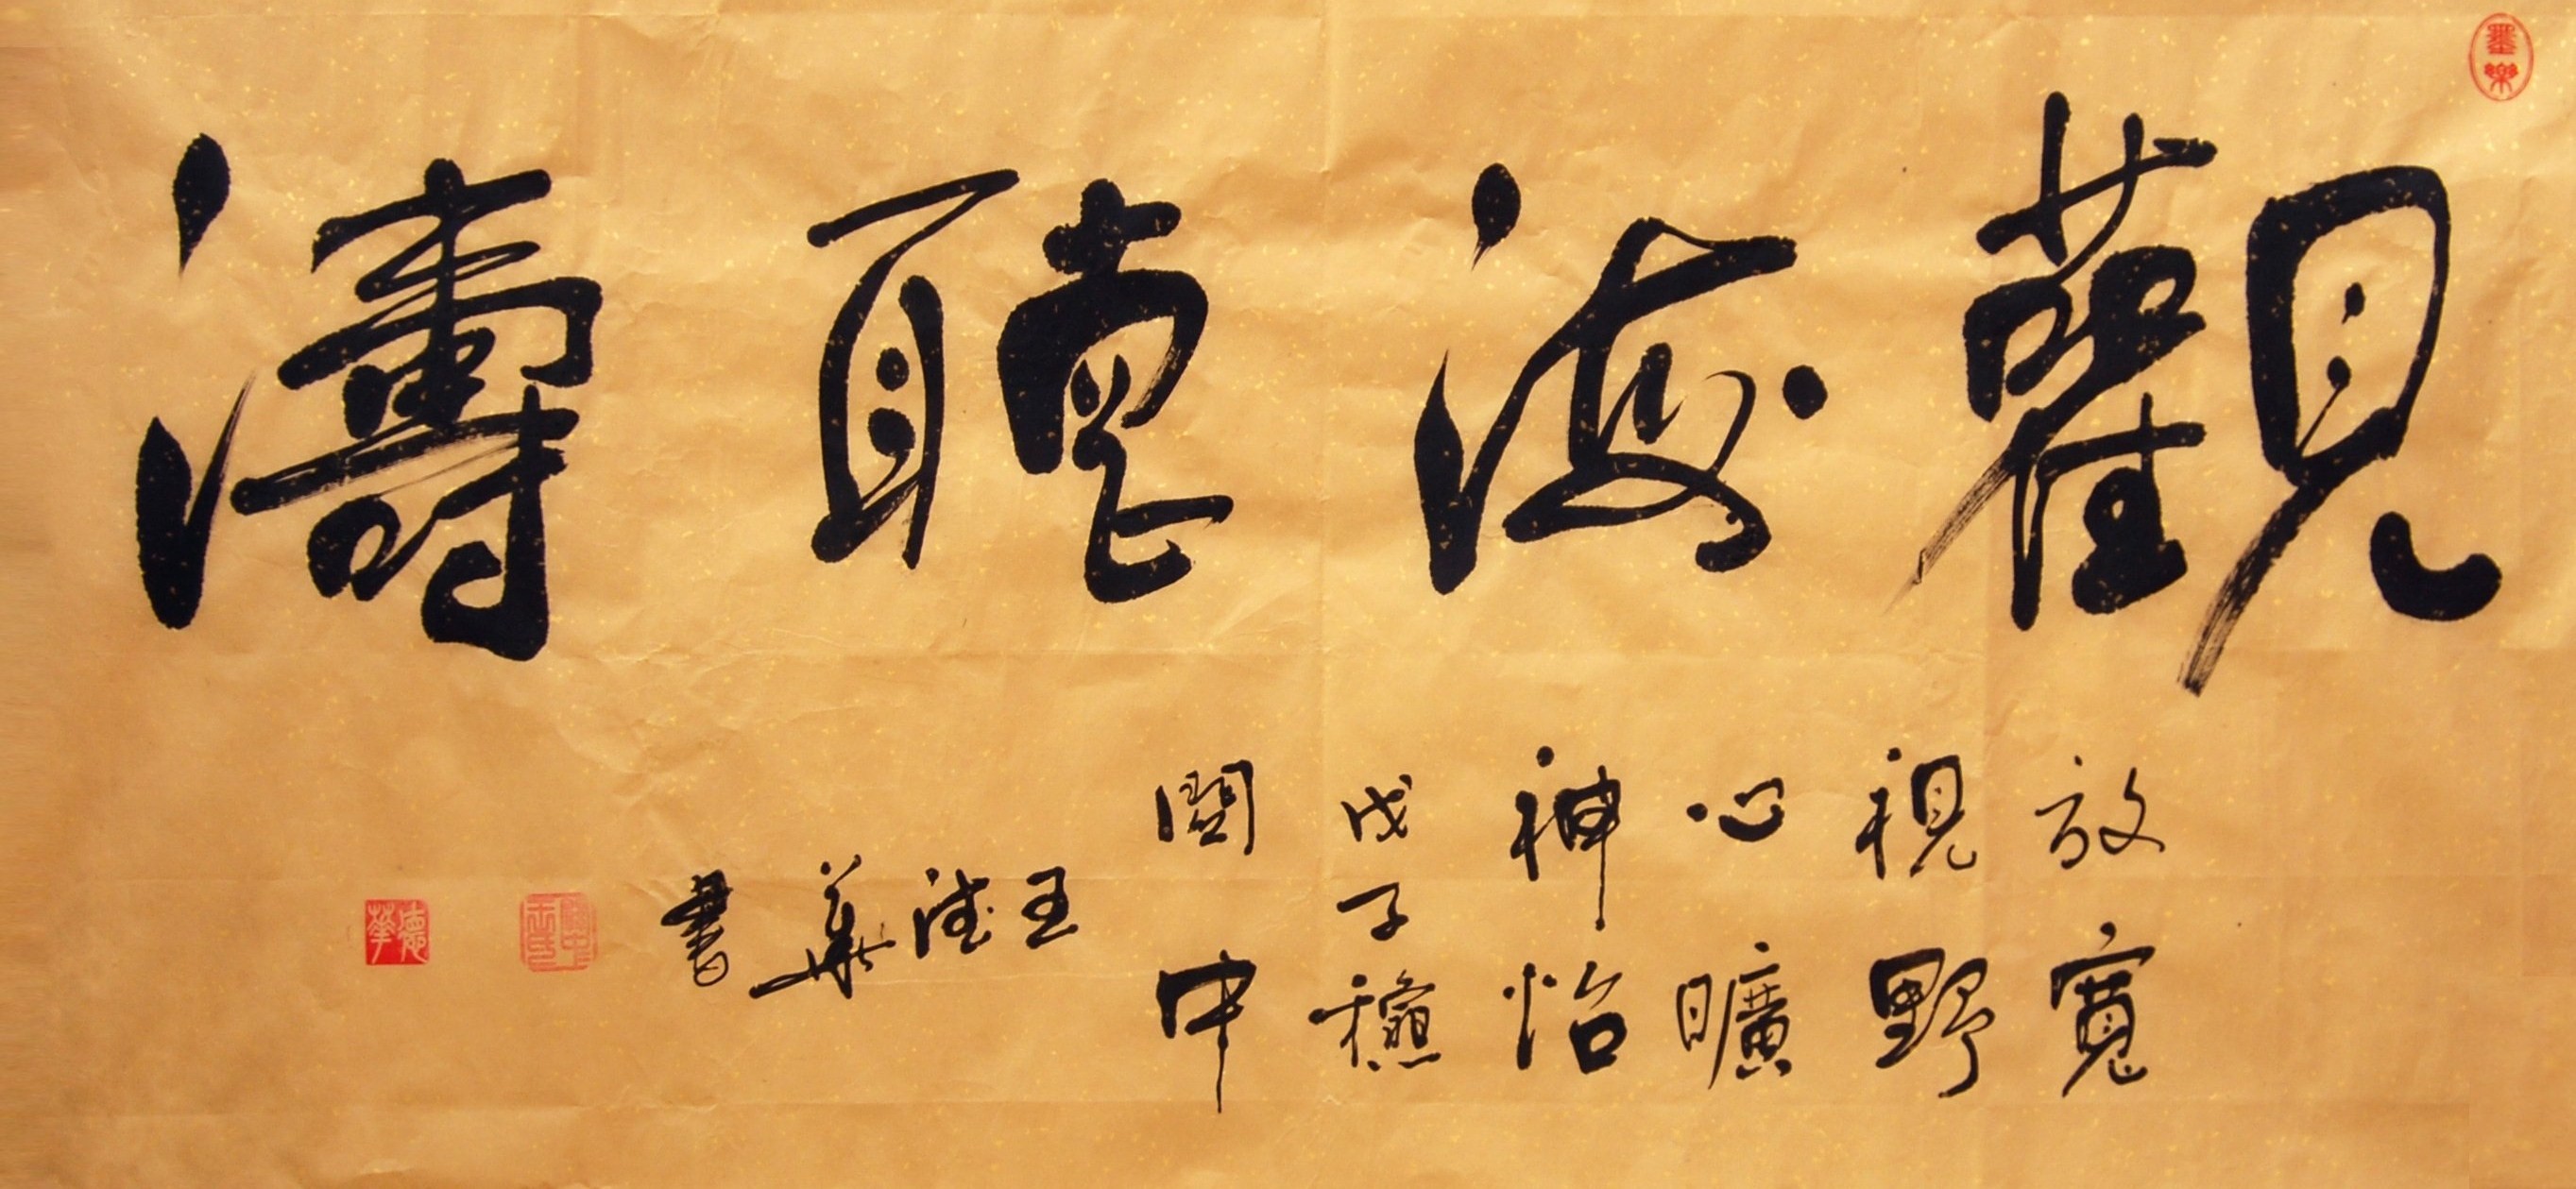 觀海聽濤
放寬
視野
心曠
神怡
戊子穐
關中
王德華
書
墨樂
德華